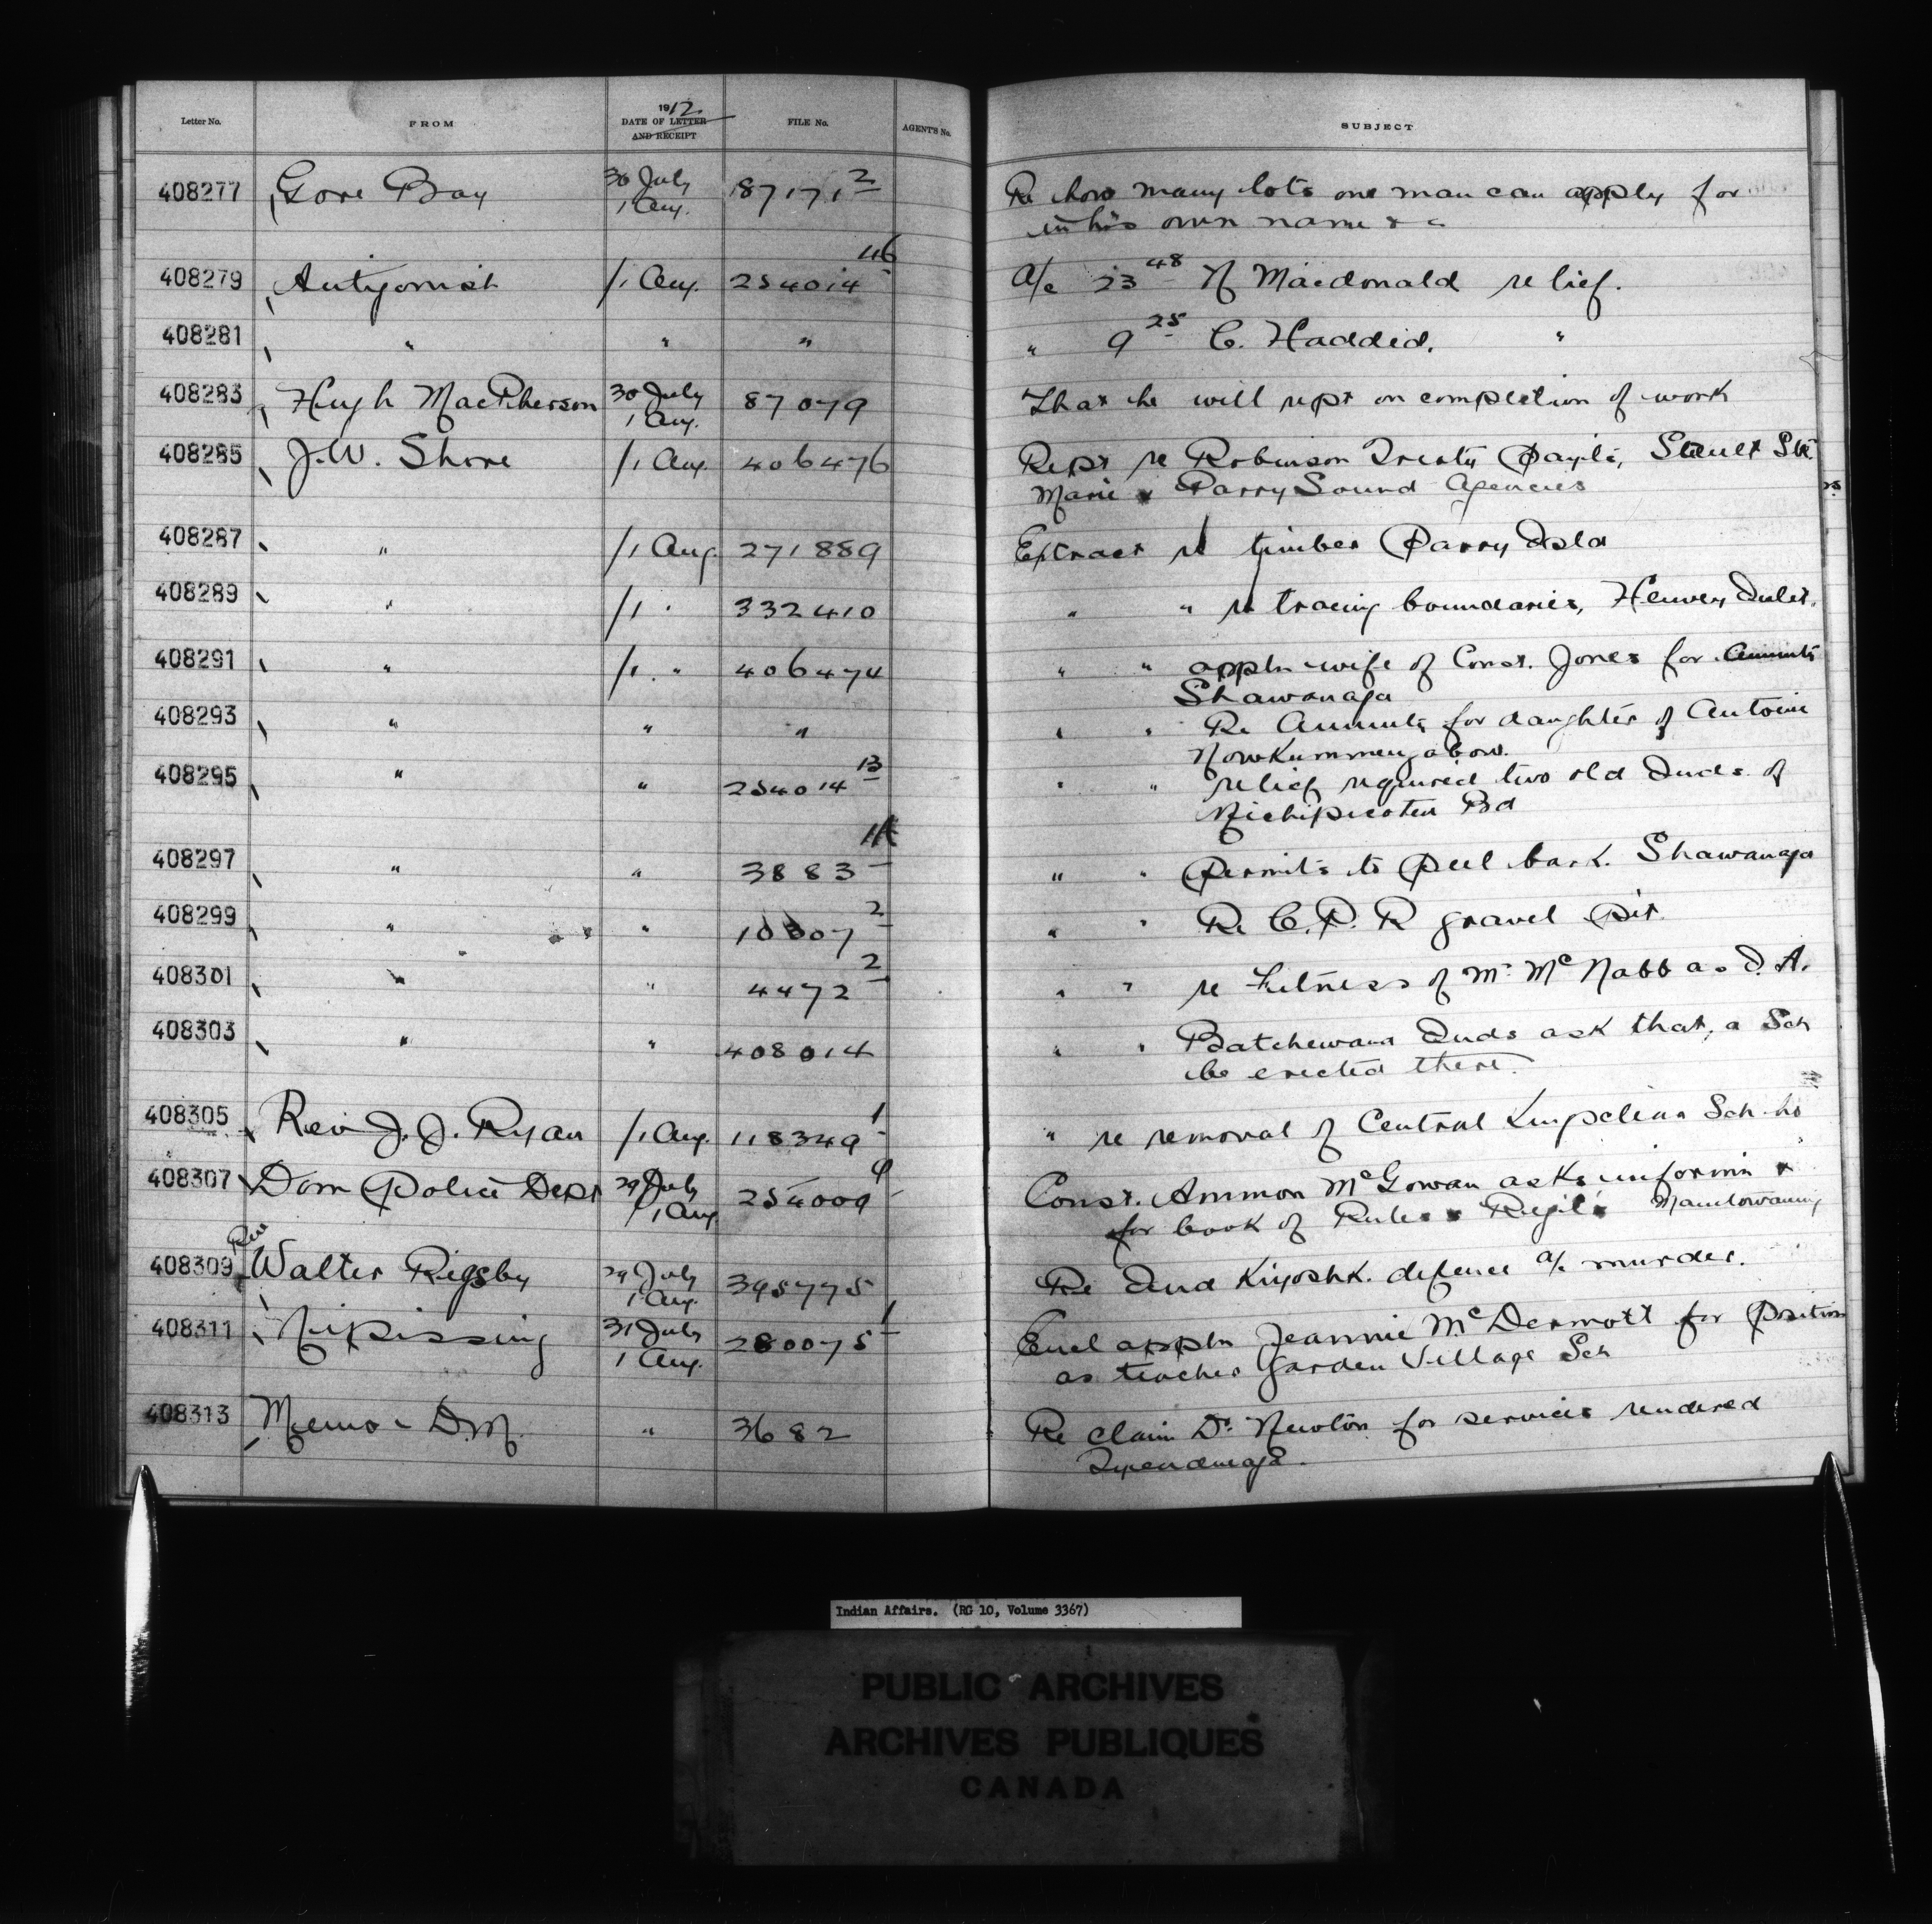 Letter No. FROM 1912 DATE OF LETTER AND RECEIPT FILE No. AGENT'S No. SUBJECT
408277 Gore Bay 30 July 1 Aug. 87171 2 Re how many lots one man can apply for
in his own name & c
408279 Antigonish /1 Aug. 254014 46 a/c 23 48 Macdonald relief.
408281 " " " " 9 25 C. Haddid. "
408283 Hugh MacPherson 30 July 1 Aug. 87079 That he will rept on completion of work
408285 J.W. Shore /1 Aug. 406476 Rept re Robinson Treaty Paymts, Sault Ste
Marie & Parry Sound Agencies
408287 " /1 Aug. 271889 Extract re timber Parry Isld
408289 " /1 " 332410 " " re tracing boundaries, Henvey Inlet.
408291 " /1 " 406474 " " appln wife of Const. Jones for Annuity
Shawanaga
408293 " " " " " Re Annuity for daughter of Antoine
Nowkummengabow.
408295 " " 254014 13 " " relief required two old Inds. of
Michipicoten Bd
408297 " " 3883 " " Permits to peel bark. Shawanaga
408299 " " 10307 2 " " Re C.P.R gravel Pit.
408301 " " 4472 2 " " re Fitness of Mr McNabb as I.A.
408303 " " 408014 " " Batchewana Inds ask that a Sch
be erected there.
408305 Rev J.J. Ryan /1 Aug. 118349 1 " re removal of Central Sch. ho
408307 Dom Police Dept 29 July /1 Aug 254009 9 Const. Ammon McGowan asks uniform &
for book of Rules & Regl's Manitowaning
408309 Rev Walter Rigsby 29 July 1 Aug. 395775 Re Ind Kiyoshk. defence a/c murder.
408311 Nipissing 31 July 1 Aug. 280075 1 Encl appln Jeannie McDermott for position
as teacher Garden Village Sch
408313 Memo - D.M. " 3682 Re claim Dr. Newton for services rendered
Tyendinaga.
Indian Affairs. (RG 10, Volume 3367)
PUBLIC ARCHIVES
ARCHIVES PUBLIQUES
CANADA